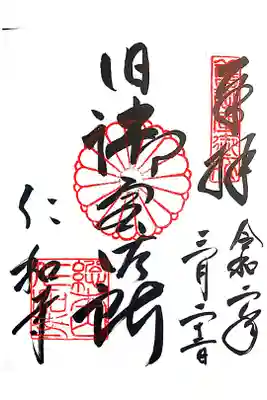 奉拝
令和二年
三月
旧御室御所
仁和寺